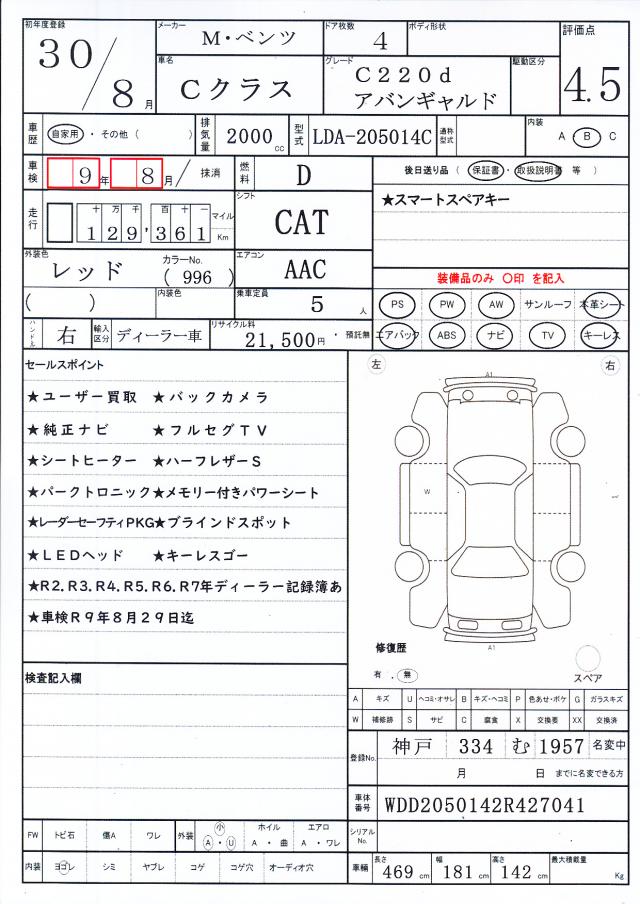 初年度登録 30/8月 メーカー M・ベンツ ドア枚数 4 ボディ形状 評価点 4.5
車名 Cクラス グレード C220d アバンギャルド 駆動区分
車歴 自家用・その他( ) 排気量 2000cc 型式 LDA-205014C 通称型式 内装 A B C
車検 9年 8月/ 抹消 燃料 D 後日送り品( 保証書・取扱説明書 等 )
走行 十万千百十一 129,361 マイル Km シフト CAT ★スマートスペアキー
外装色 レッド カラーNo. ( 996 ) エアコン AAC 装備品のみ 〇印 を記入
( ) 内装色 乗車定員 5人 PS PW AW サンルーフ 本革シート
ハンドル 右 輸入区分 ディーラー車 リサイクル料 21,500円・預託無 エアバック ABS ナビ TV キーレス
セールスポイント
★ユーザー買取 ★バックカメラ
★純正ナビ ★フルセグTV
★シートヒーター ★ハーフレザーS
★パークトロニック★メモリー付きパワーシート
★レーダーセーフティPKG★ブラインドスポット
★LEDヘッド ★キーレスゴー
★R2.R3.R4.R5.R6.R7年ディーラー記録簿あ
★車検R9年8月29日迄
左 右
A1
W
A1
修復歴
有.無 スペア
検査記入欄
A キズ U ヘコミ・オサレ B キズ・ヘコミ P 色あせ・ボケ G ガラスキズ
W 補修跡 S サビ C 腐食 X 交換要 XX 交換済
登録No. 神戸 334 む 1957 名変中
月 日 までに名変できる方
車体番号 WDD2050142R427041
シリアルNo.
FW トビ石 傷A ワレ 外装 小 A・U ホイル A・曲 エアロ A・ワレ
内装 ヨゴレ シミ ヤブレ コゲ コゲ穴 オーディオ穴
車輛 長さ 469cm 幅 181cm 高さ 142cm 最大積載量 Kg